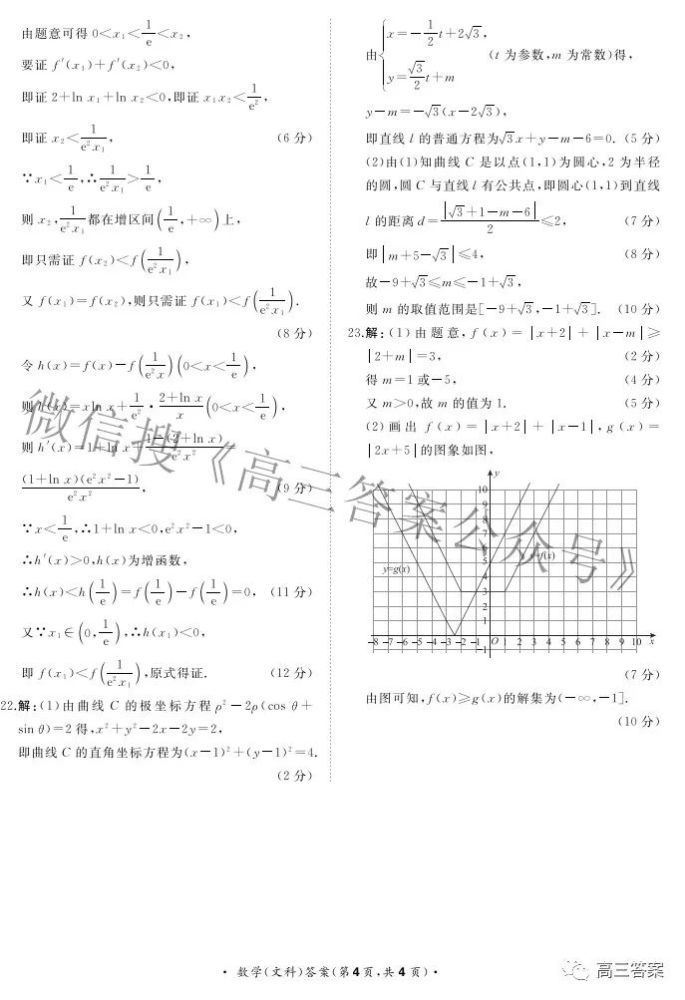 由题意可得 0<x₁<1/e<x₂,
要证 f′(x₁)+f′(x₂)<0,
即证 2+ln x₁+ln x₂<0,即证 x₁x₂<1/e²,
即证 x₂<1/(e²x₁), (6 分)
∵x₁<1/e,∴1/(e²x₁)>1/e,
则 x₂,1/(e²x₁)都在增区间(1/e,+∞)上,
即只需证 f(x₂)<f(1/(e²x₁)),
又 f(x₁)=f(x₂),则只需证 f(x₁)<f(1/(e²x₁)).
(8 分)
令 h(x)=f(x)-f(1/(e²x))(0<x<1/e),
则 h(x)=xln x+1/e²·(2+ln x)/x(0<x<1/e),
则 h′(x)=1+ln x+(1-(2+ln x))/(e²x²)=
((1+ln x)(e²x²-1))/(e²x²). (9 分)
∵x<1/e,∴1+ln x<0,e²x²-1<0,
∴h′(x)>0,h(x)为增函数,
∴h(x)<h(1/e)=f(1/e)-f(1/e)=0, (11 分)
又∵x₁∈(0,1/e),∴h(x₁)<0,
即 f(x₁)<f(1/(e²x₁)),原式得证. (12 分)
22.解:(1)由曲线 C 的极坐标方程 ρ²-2ρ(cos θ+
sin θ)=2 得,x²+y²-2x-2y=2,
即曲线 C 的直角坐标方程为(x-1)²+(y-1)²=4.
(2 分)
由{x=-1/2t+2√3,
y=√3/2t+m (t 为参数,m 为常数)得,
y-m=-√3(x-2√3),
即直线 l 的普通方程为√3x+y-m-6=0. (5 分)
(2)由(1)知曲线 C 是以点(1,1)为圆心,2 为半径
的圆,圆 C 与直线 l 有公共点,即圆心(1,1)到直线
l 的距离 d=|√3+1-m-6|/2≤2, (7 分)
即|m+5-√3|≤4, (8 分)
故-9+√3≤m≤-1+√3,
则 m 的取值范围是[-9+√3,-1+√3]. (10 分)
23.解:(1)由题意,f(x)=|x+2|+|x-m|≥
|2+m|=3, (2 分)
得 m=1 或-5, (4 分)
又 m>0,故 m 的值为 1. (5 分)
(2)画出 f(x)=|x+2|+|x-1|,g(x)=
|2x+5|的图象如图,
y
10
9
8
7
6
5
4
3
2
1
-1
y=g(x)
y=f(x)
-8 -7 -6 -5 -4 -3 -2 -1 O 1 2 3 4 5 6 7 8 9 10 x
(7 分)
由图可知,f(x)≥g(x)的解集为(-∞,-1].
(10 分)
微信搜《高三答案公众号》
· 数学(文科)答案(第 4 页,共 4 页) ·
高三答案